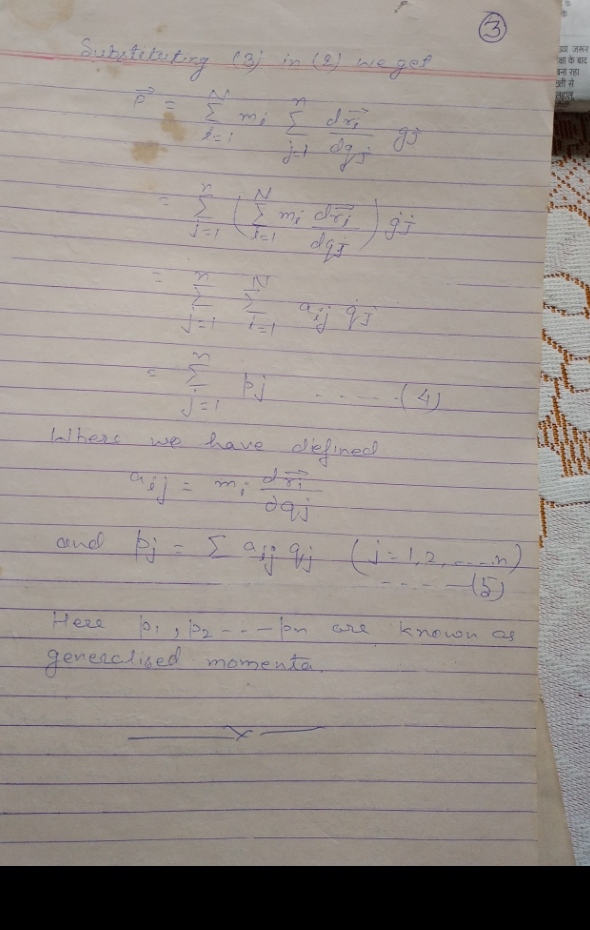 3
Substituting (3) in (2) we get
p⃗ = Σ_{i=1}^{N} m_i Σ_{j=1}^{n} dr⃗_i/dq_j q̇_j
= Σ_{j=1}^{n} ( Σ_{i=1}^{N} m_i dr⃗_i/dq_j ) q̇_j
= Σ_{j=1}^{n} Σ_{i=1}^{N} a_ij q̇_j
= Σ_{j=1}^{n} p_j ......(4)
Where we have defined
a_ij = m_i dr⃗_i/dq_j
and p_j = Σ a_ij q_j (j = 1, 2, .....n)
......(5)
Here p_1, p_2 - - - p_n are known as
generalised momenta.